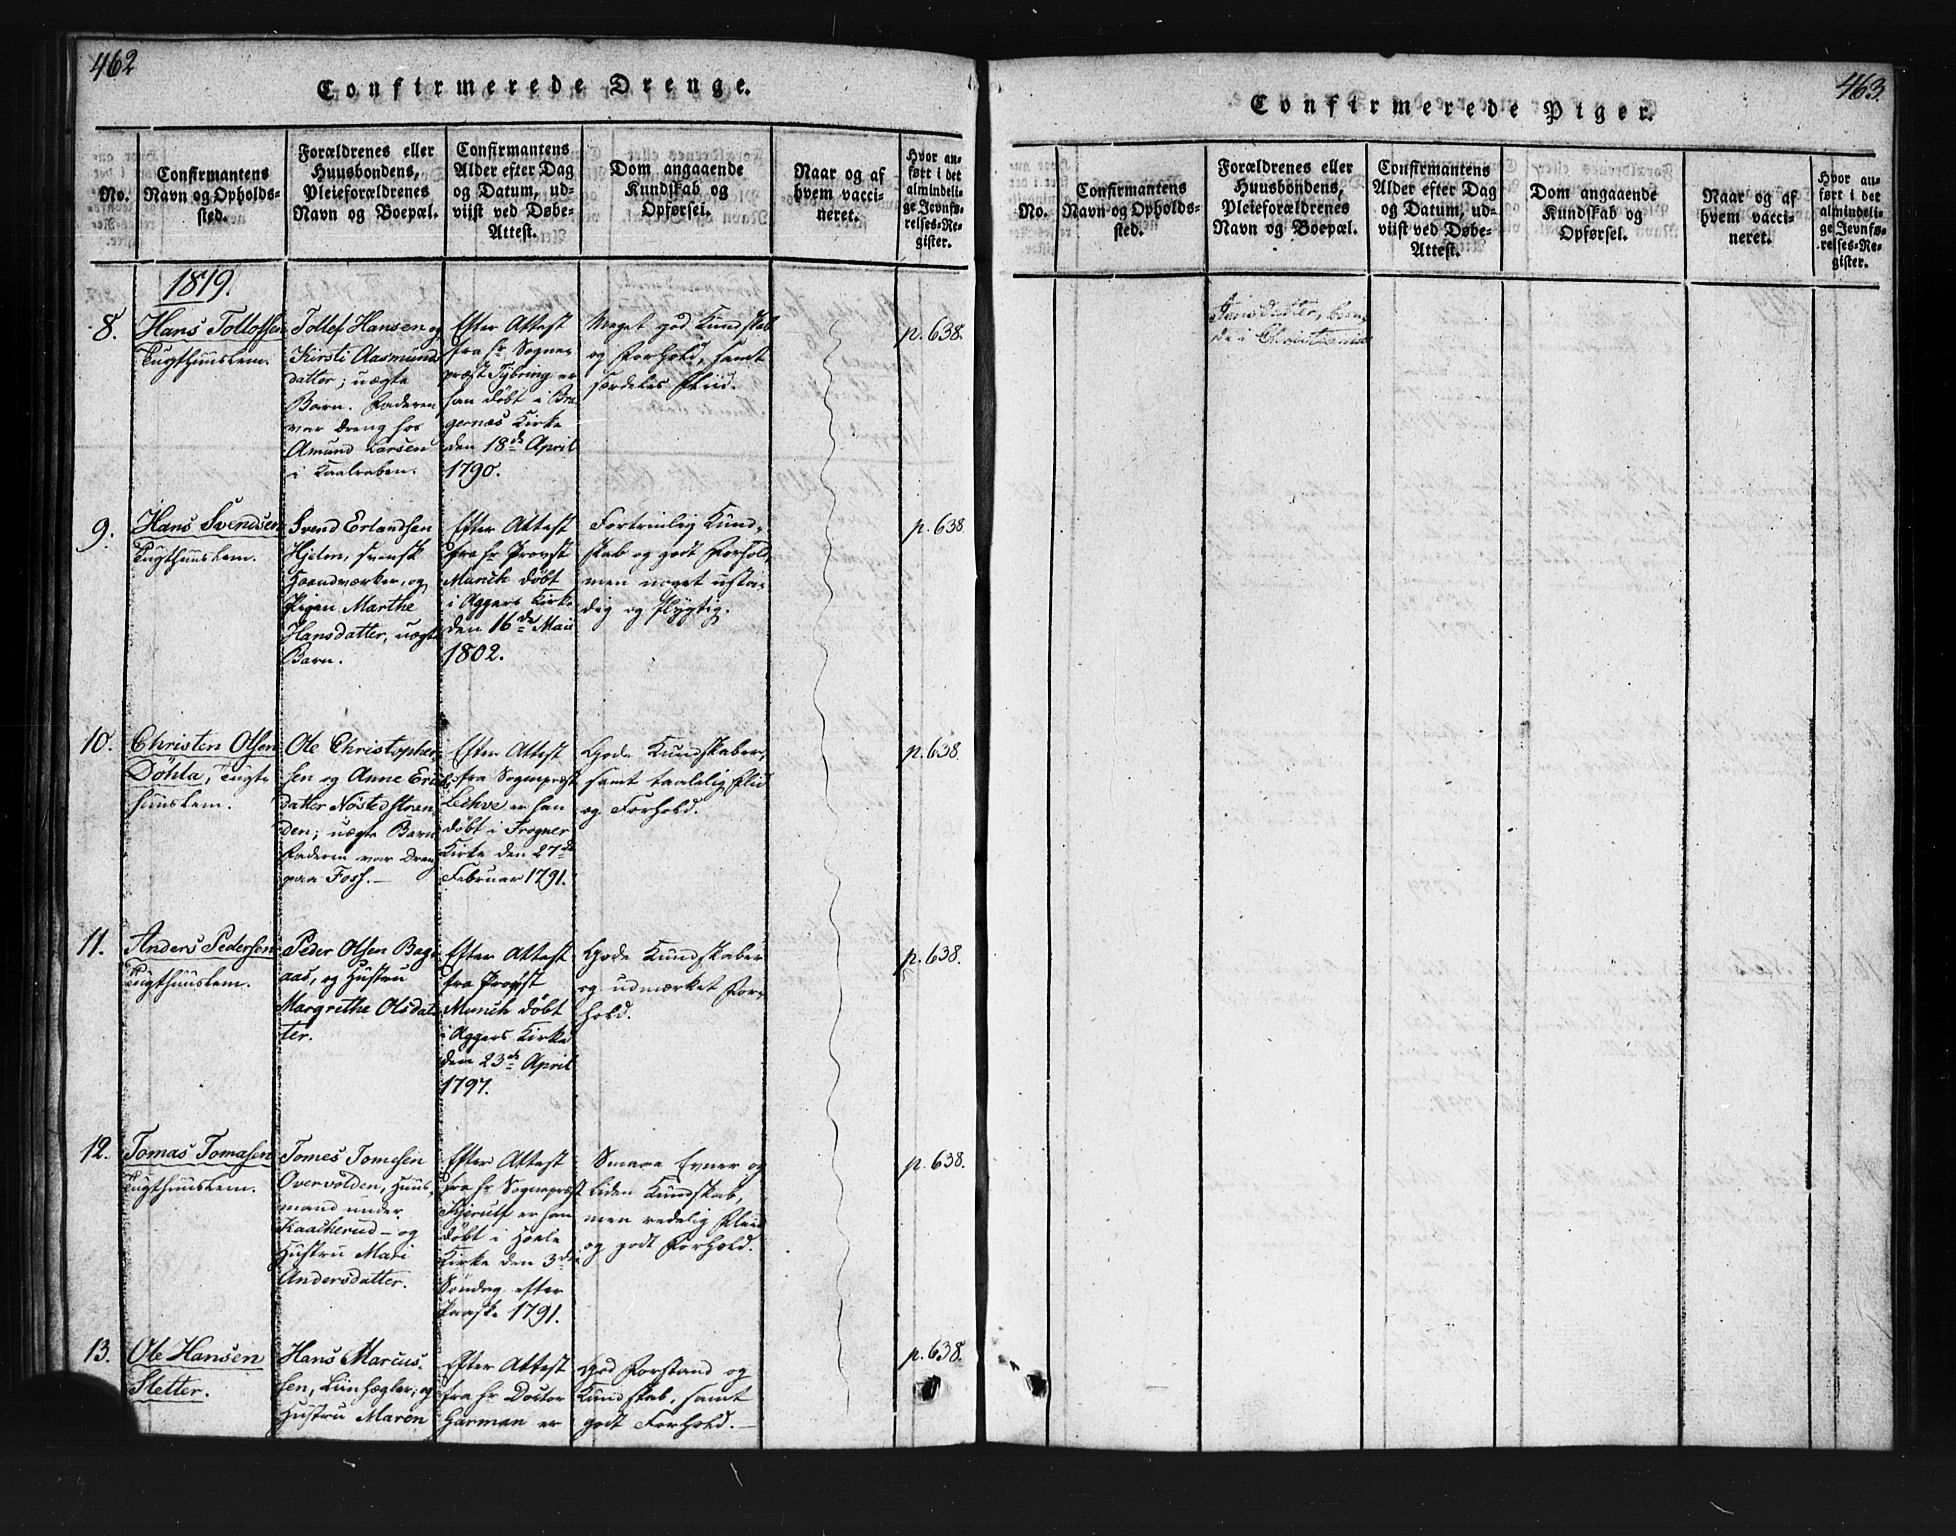 462
Confirmerede Drenge.
No.
Confirmantens
Navn og Opholds-
sted.
Forældrenes eller
Huusbondens,
Pleieforældrenes
Navn og Boepæl.
Confirmantens
Alder efter Dag
og Datum, ud-
viist ved Døbe-
Attest.
Dom angaaende
Kundskab og
Opførsel.
Naar og af
hvem vacci-
neret.
Hvor an-
ført i det
almindeli-
ge Jevnfø-
relses-Re-
gister.
1819.
8.
Hans Tollofsen
Tugthuuslem.
Tollef Hansen og
Kirsti Aasmunds
datter; uægte
Barn. Faderen
var Dreng hos
Amund Larsen
i
Efter Attest
fra Hr Sogne-
præst Tybring er
han døbt i Bra-
gernæs Kirke
den 18de April
1790.
Meget god Kundskab
og Forhold, samt
særdeles Fliid.
p. 638.
9.
Hans Svendsen
Tugthuuslem.
Svend Erlandsen
Hjelm, svensk
Haandværker, og
Pigen Marthe
Hansdatter, uægte
Barn.
Efter Attest
fra Hr Provst
Munch døbt
i Aggers Kirke
den 16de Maii
1802.
Fortrinlig Kund-
skab og godt Forhold,
men noget usta-
dig og flygtig.
p. 638
10.
Christen Olsen
Döhla, Tugt-
huuslem.
Ole Christopher-
sen og Anne Erics
datter Nöstedstran-
den; uægte Barn
Faderen var Dreng
paa Foss.—
Efter Attest
fra Sognepræst
er han
døbt i Frogner
Kirke den 27de
Februar 1791.
Gode Kundskaber,
samt taalelig Flid
og Forhold.
p. 638.
11.
Anders Pedersen
Tugthuuslem.
Peder Olsen Bag-
aas, og Hustru
Margrethe Olsdat-
ter.
Efter Attest
fra Provst
Munch døbt
i Aggers Kirke
den 23de April
1797.
Gode Kundskaber
og udmærket For-
hold.
p. 638.
12.
Tomas Tomasen
Tugthuuslem.
Tomes Tomesen
Overvolden, Huus-
mand under
og
Hustru Mari
Andersdatter.
Efter Attest
fra Hr Sognepræst
Kjerulf er han
døbt i
Kirke den 3die
Søndag efter
Paaske 1791.
Smaae Evner og
liden Kundskab,
men redelig Fliid
og godt Forhold.
p. 638.
13.
Ole Hansen
Sletter.
Hans Marcus-
sen, Liinhægler, og
Hustru Maren
Efter Attest
fra Hr Doctor
Garman er
God Forstand og
Kundskab, samt
godt Forhold.—
p. 638.
463.
Confirmerede Piger.
No.
Confirmantens
Navn og Opholds-
sted.
Forældrenes eller
Huusbondens,
Pleieforældrenes
Navn og Boepæl.
Confirmantens
Alder efter Dag
og Datum, ud-
viist ved Døbe-
Attest.
Dom angaaende
Kundskab og
Opførsel.
Naar og af
hvem vacci-
neret.
Hvor an-
ført i det
almindeli-
ge Jevnfø-
relses-Re-
gister.
Jensdatter, boen-
de i Christiania